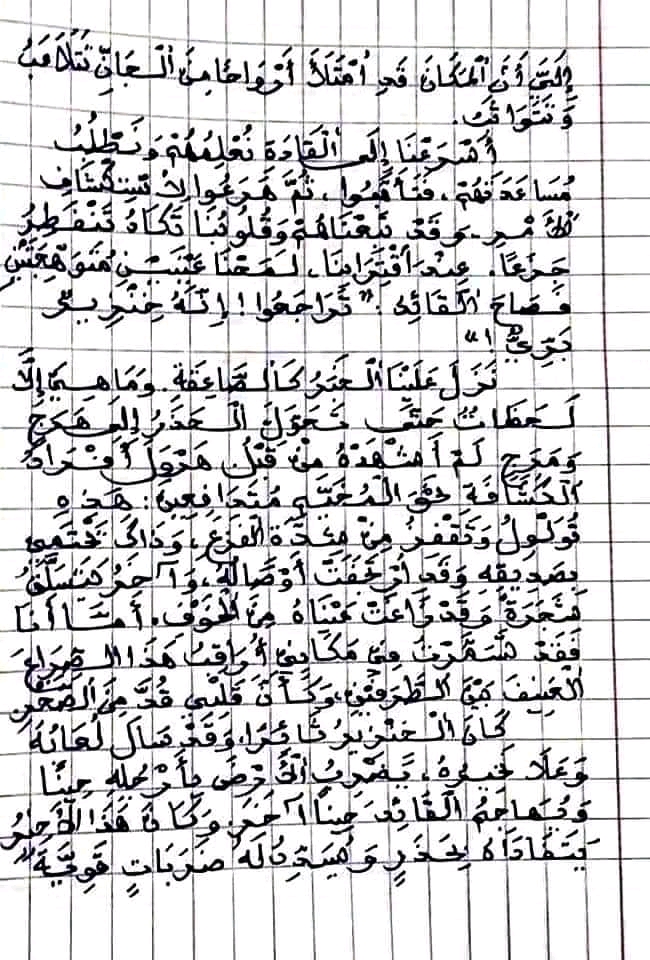 إِلَيَّ أَنَّ الْمَكَانَ قَدِ امْتَلَأَ أَرْوَاحًا مِنَ الْجَانِّ تَتَلَاعَبُ
وَتَتَوَاثَبُ.
أَسْرَعْنَا إِلَى الْقَادَةِ نُعْلِمُهُمْ وَنَطْلُبُ
مُسَاعَدَتَهُمْ، فَتَأَهَّبُوا، ثُمَّ هَرَعُوا لِاسْتِكْشَافِ
الْأَمْرِ. وَقَدْ تَبِعْنَاهُمْ وَقُلُوبُنَا تَكَادُ تَنْفَطِرُ
جَزَعًا. عِنْدَ اقْتِرَابِنَا، لَمَحْنَا عَيْنَيْنِ مُتَوَهِّجَتَيْنِ
فَصَاحَ الْقَائِدُ: "تَرَاجَعُوا! إِنَّهُ خِنْزِيرٌ
بَرِّيٌّ!"
نَزَلَ عَلَيْنَا الْخَبَرُ كَالصَّاعِقَةِ. وَمَا هِيَ إِلَّا
لَحَظَاتٌ حَتَّى تَحَوَّلَ الْحَذَرُ إِلَى هَرَجٍ
وَمَرَجٍ لَمْ أَشْهَدْهُ مِنْ قَبْلُ هَرْوَلَ أَفْرَادُ
الْكَشَّافَةِ نَحْوَ الْمُخَيَّمِ مُتَدَافِعِينَ: هَذِهِ
تُوَلْوِلُ وَتَقْفِزُ مِنْ شِدَّةِ الْفَزَعِ، وَذَاكَ يَحْتَمِي
بِصَدِيقِهِ وَقَدِ ارْتَجَفَتْ أَوْصَالُهُ، وَآخَرُ يَتَسَلَّقُ
شَجَرَةً وَقَدْ زَاغَتْ عَيْنَاهُ مِنَ الْخَوْفِ. أَمَّا أَنَا
فَقَدْ تَسَمَّرْتُ فِي مَكَانِي أُرَاقِبُ هَذَا الصِّرَاعَ
الْعَنِيفَ بَيْنَ الطَّرَفَيْنِ، وَكَأَنَّ قَلْبِي قُدَّ مِنَ الصَّخْرِ
كَانَ الْخِنْزِيرُ ثَائِرًا، وَقَدْ سَالَ لُعَابُهُ
وَعَلَا نَخِيرُهُ، يَضْرِبُ الْأَرْضَ بِأَرْجُلِهِ حِينًا
وَيُهَاجِمُ الْقَائِدَ حِينًا آخَرَ. وَكَانَ هَذَا الْأَخِيرُ
يَتَفَادَاهُ بِحَذَرٍ وَيُسَدِّدُ لَهُ ضَرَبَاتٍ قَوِيَّةً"